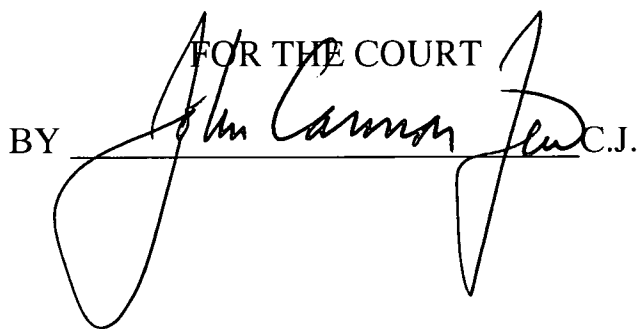 FOR THE COURT
BY John Cannon Few C.J.